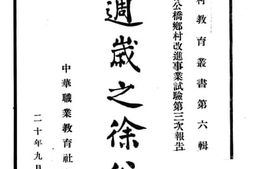 村教育叢書第六輯
公橋鄉村改進事業試驗第三次報告
週歲之徐
中華職業教育社
二十年九月